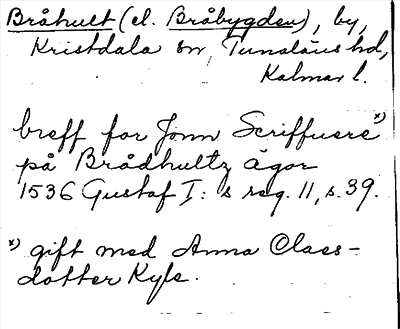 Bråhult (el. Bråbygden), by,
Kristdala sn, Tunaläns hd,
Kalmar l.
breff for Jonn Scriffuere x)
på Brådhultz ägor
1536 Gustaf I:s reg. 11, s. 39.
x) gift med Anna Claes-
dotter Kyle.